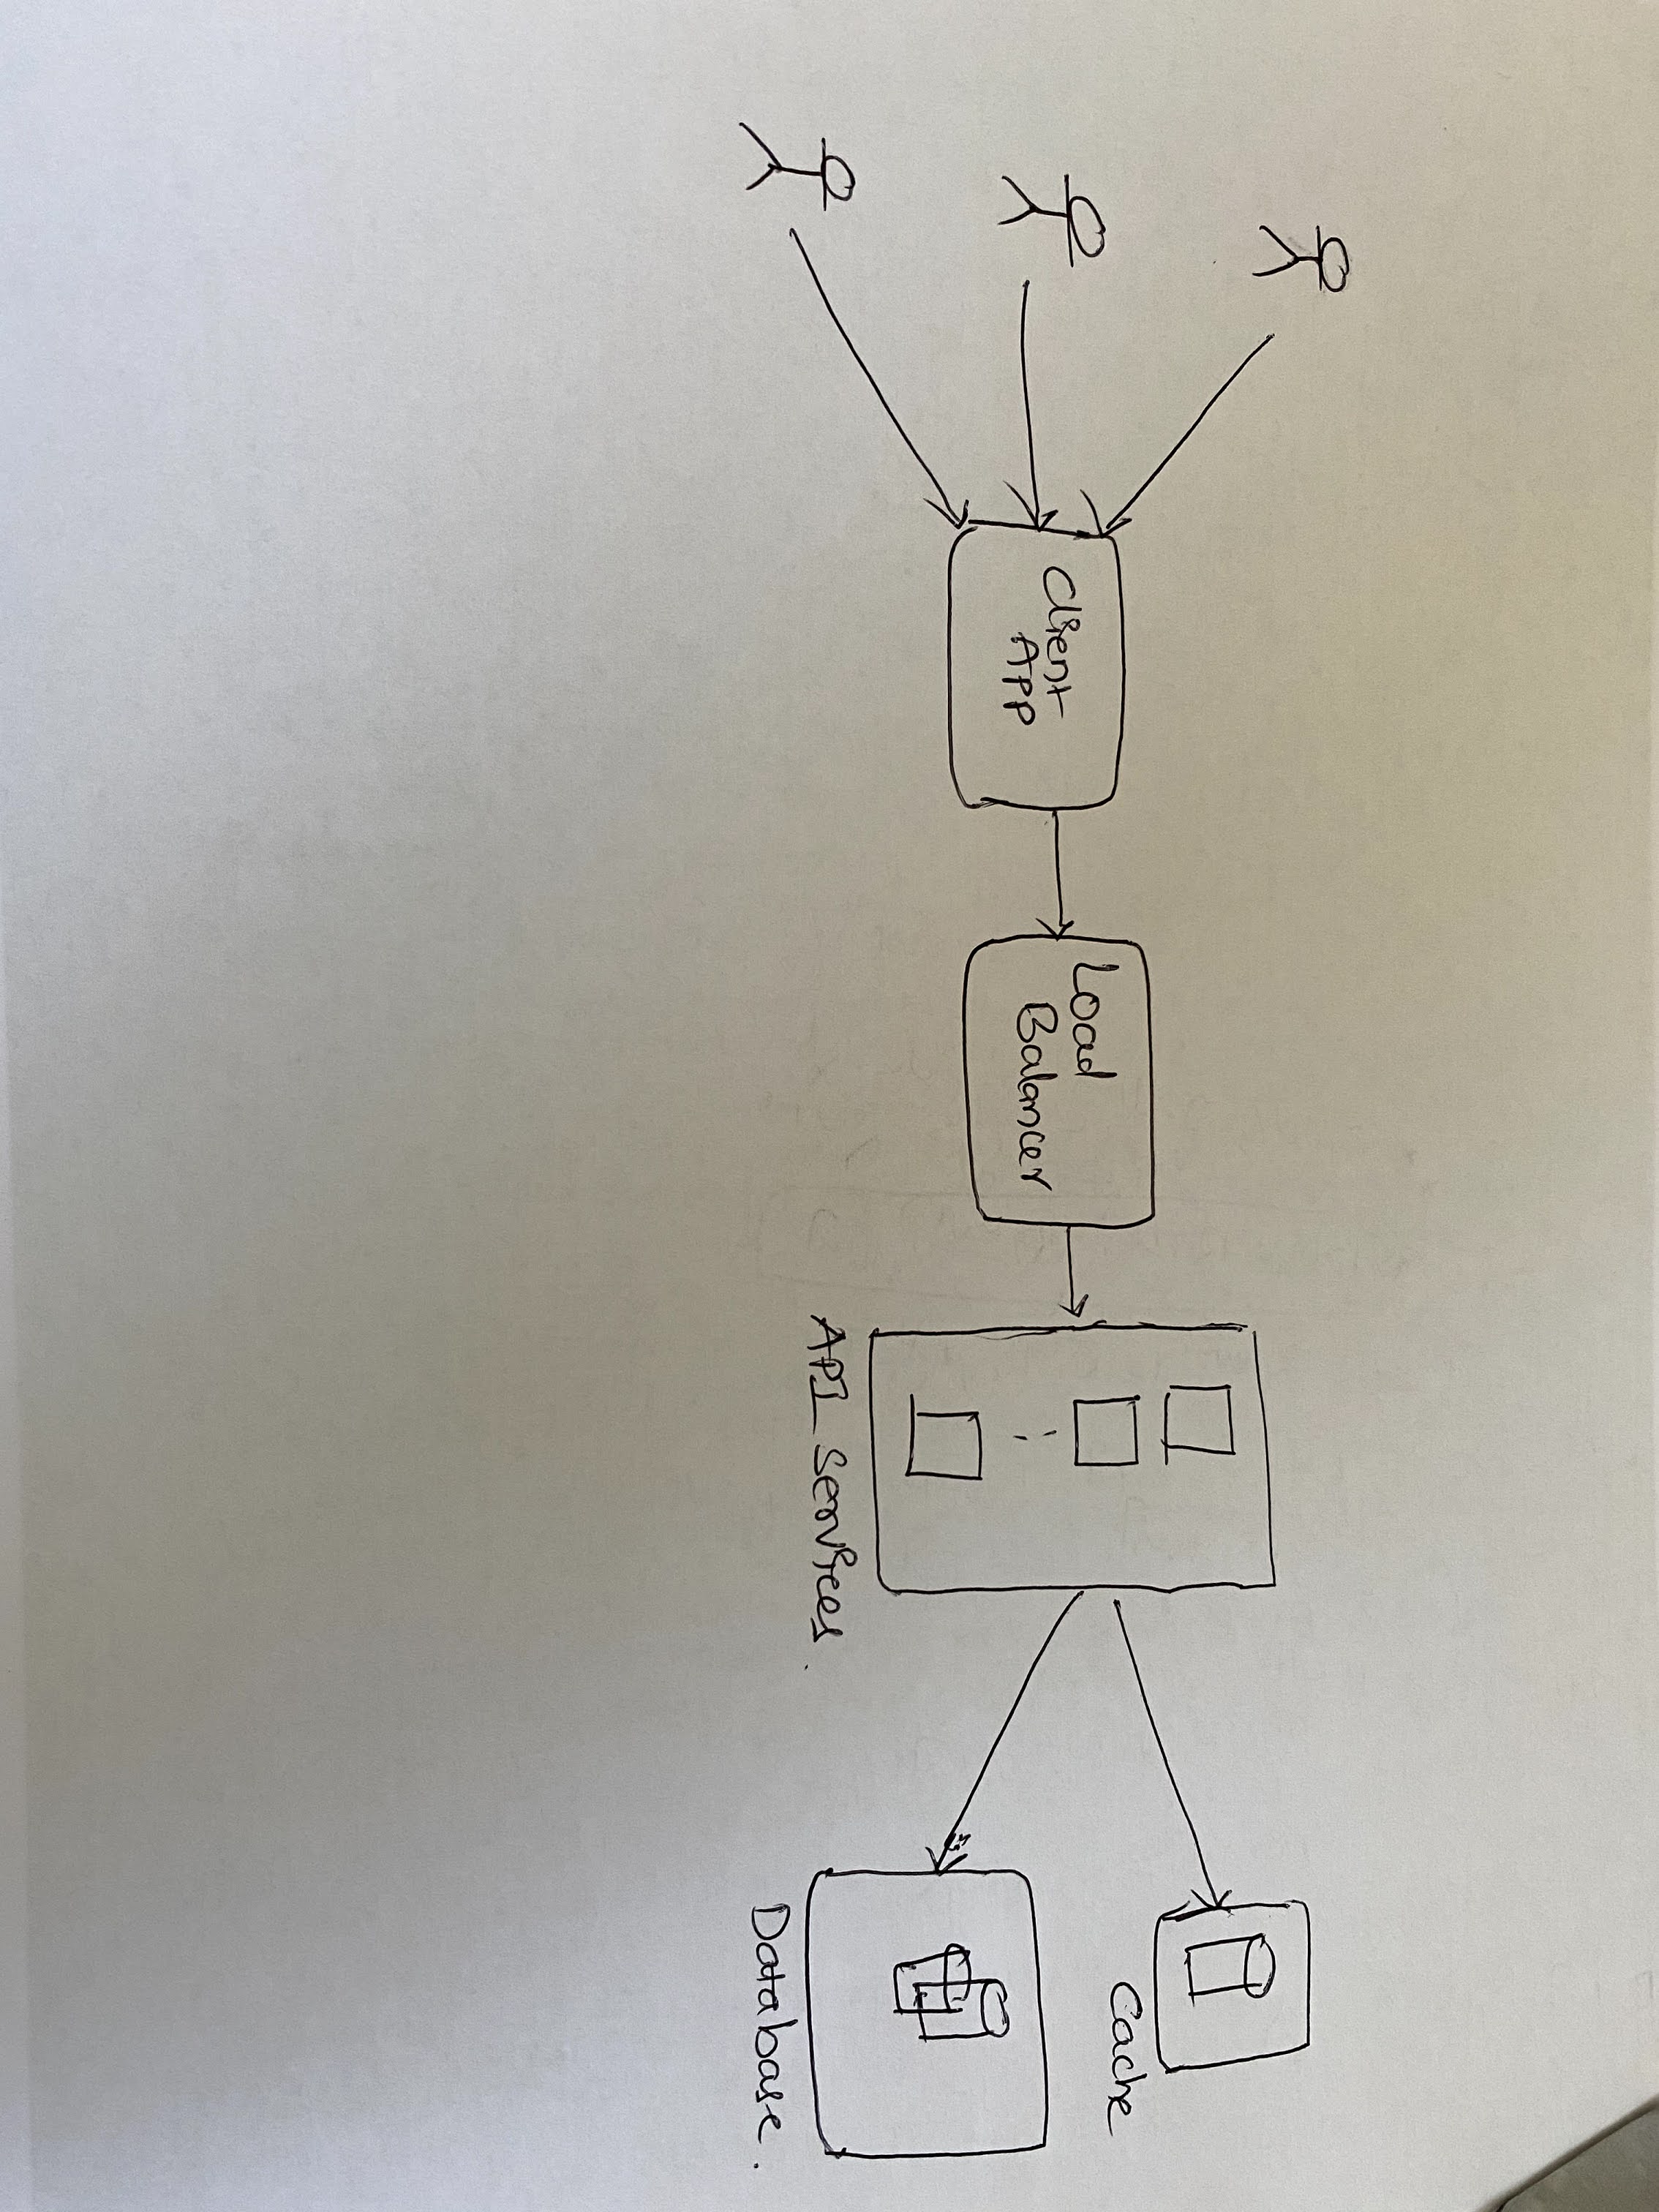 Client
App
Load
Balancer
API Services.
Cache
Database.